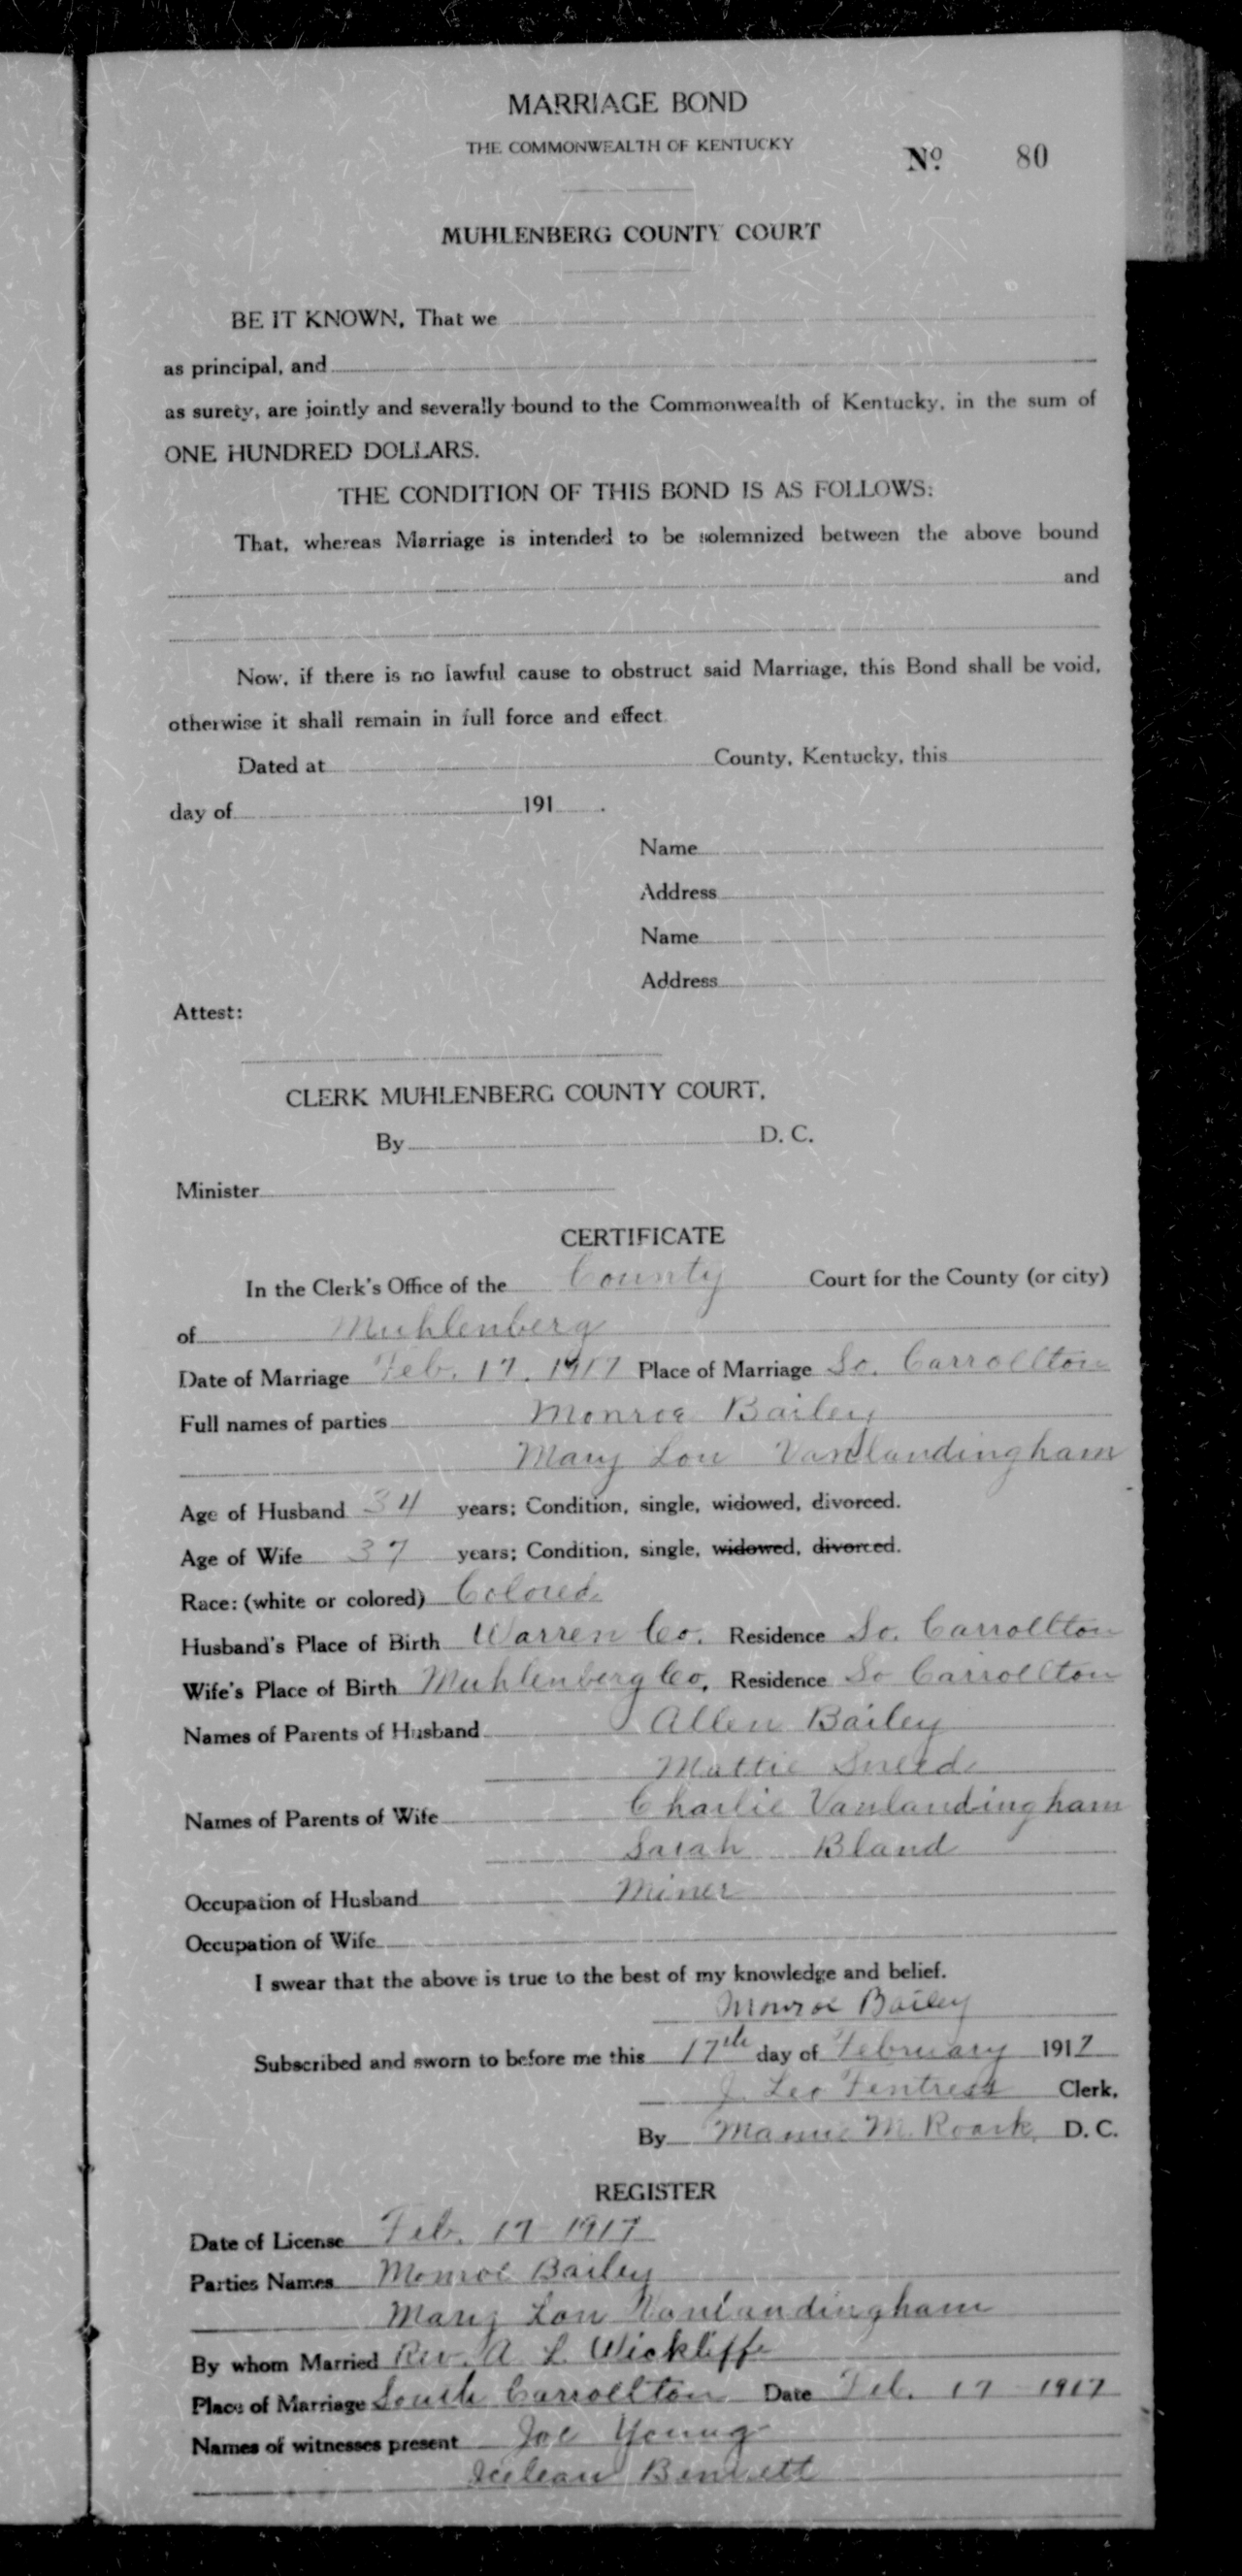 MARRIAGE BOND
THE COMMONWEALTH OF KENTUCKY
No. 80
MUHLENBERG COUNTY COURT
BE IT KNOWN, That we
as principal, and
as surety, are jointly and severally bound to the Commonwealth of Kentucky, in the sum of
ONE HUNDRED DOLLARS.
THE CONDITION OF THIS BOND IS AS FOLLOWS:
That, whereas Marriage is intended to be solemnized between the above bound
and
Now, if there is no lawful cause to obstruct said Marriage, this Bond shall be void,
otherwise it shall remain in full force and effect.
Dated at County, Kentucky, this
day of 191 .
Name
Address
Name
Address
Attest:
CLERK MUHLENBERG COUNTY COURT.
By D. C.
Minister
CERTIFICATE
In the Clerk's Office of the County Court for the County (or city)
of Muhlenberg
Date of Marriage Feb. 17, 1917 Place of Marriage So. Carrollton
Full names of parties Monroe Bailey
Mary Lou Vanlandingham
Age of Husband 34 years; Condition, single, widowed, divorced.
Age of Wife 37 years; Condition, single, widowed, divorced.
Race: (white or colored) Colored
Husband's Place of Birth Warren Co. Residence So. Carrollton
Wife's Place of Birth Muhlenberg Co, Residence So Carrollton
Names of Parents of Husband Allen Bailey
Mattie Sneed
Names of Parents of Wife Charlie Vanlandingham
Sarah Bland
Occupation of Husband Miner
Occupation of Wife
I swear that the above is true to the best of my knowledge and belief.
Monroe Bailey
Subscribed and sworn to before me this 17th day of February 1917
J. Leo Fentress Clerk.
By M. Roark, D. C.
REGISTER
Date of License Feb. 17 1917
Parties Names Monroe Bailey
Mary Lou Vanlandingham
By whom Married Rev. A. L. Wickliffe
Place of Marriage South Carrollton Date Feb. 17 1917
Names of witnesses present Joe Young
Bennett